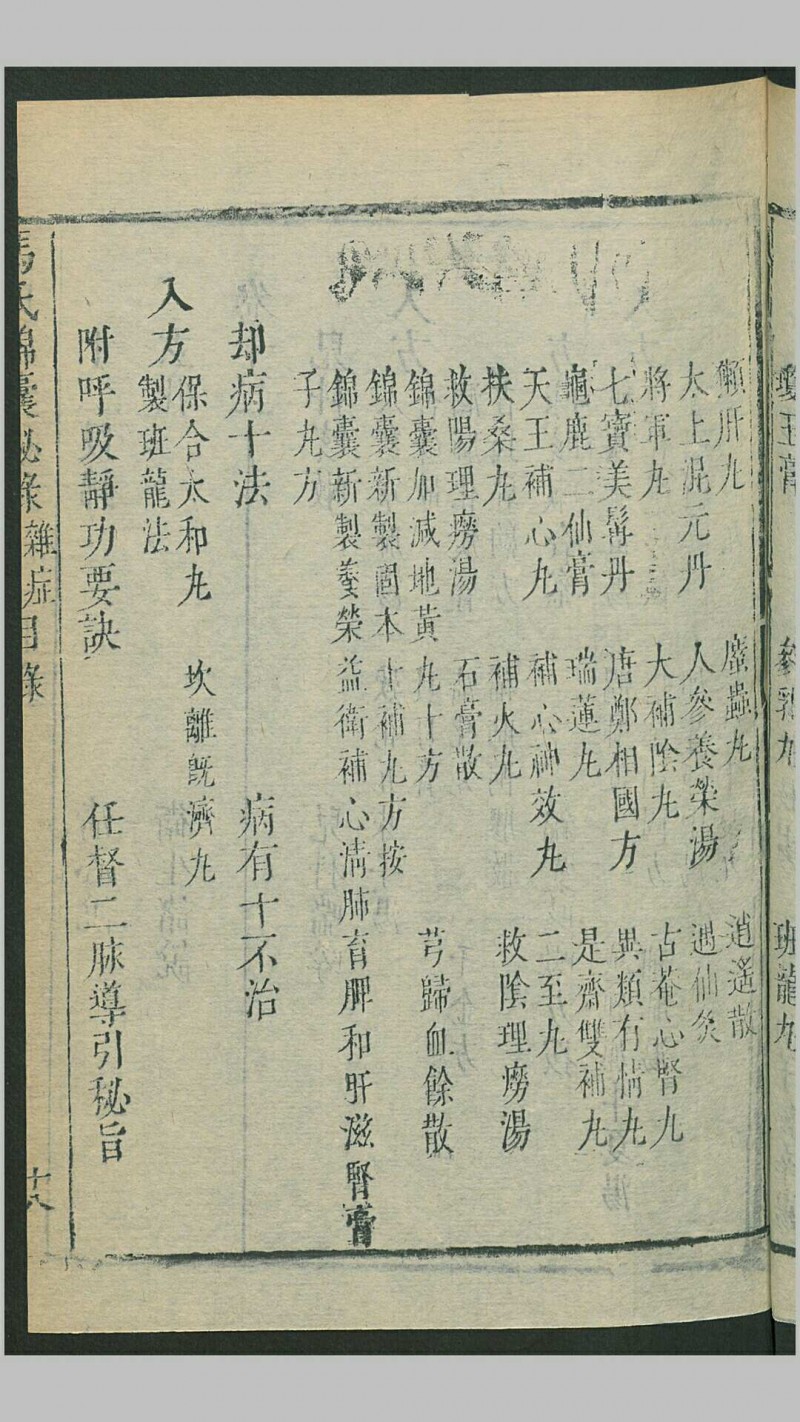 瓊玉膏 參乳丸 班龍丸
獺肝丸 䗪蟲丸 逍遙散
太上混元丹 人參養榮湯 遇仙灸
將軍丸 大補陰丸 古菴心腎丸
七寶美髯丹 唐鄭相國方 異類有情丸
龜鹿二仙膏 瑞蓮丸 是齋雙補丸
天王補心丸 補心神效丸 二至丸
扶桑丸 補火丸 救陰理癆湯
救陽理癆湯 石膏散 芎歸血餘散
錦囊加減地黃丸十方
錦囊新製固本十補丸方按
錦囊新製養榮益衛補心清肺育脾和肝滋腎膏
子丸方
却病十法 病有十不治
入方 保合太和丸 坎離既濟丸
製班龍法
附呼吸靜功要訣 任督二脉導引秘旨
馮氏錦囊秘錄 雜症目錄 十八